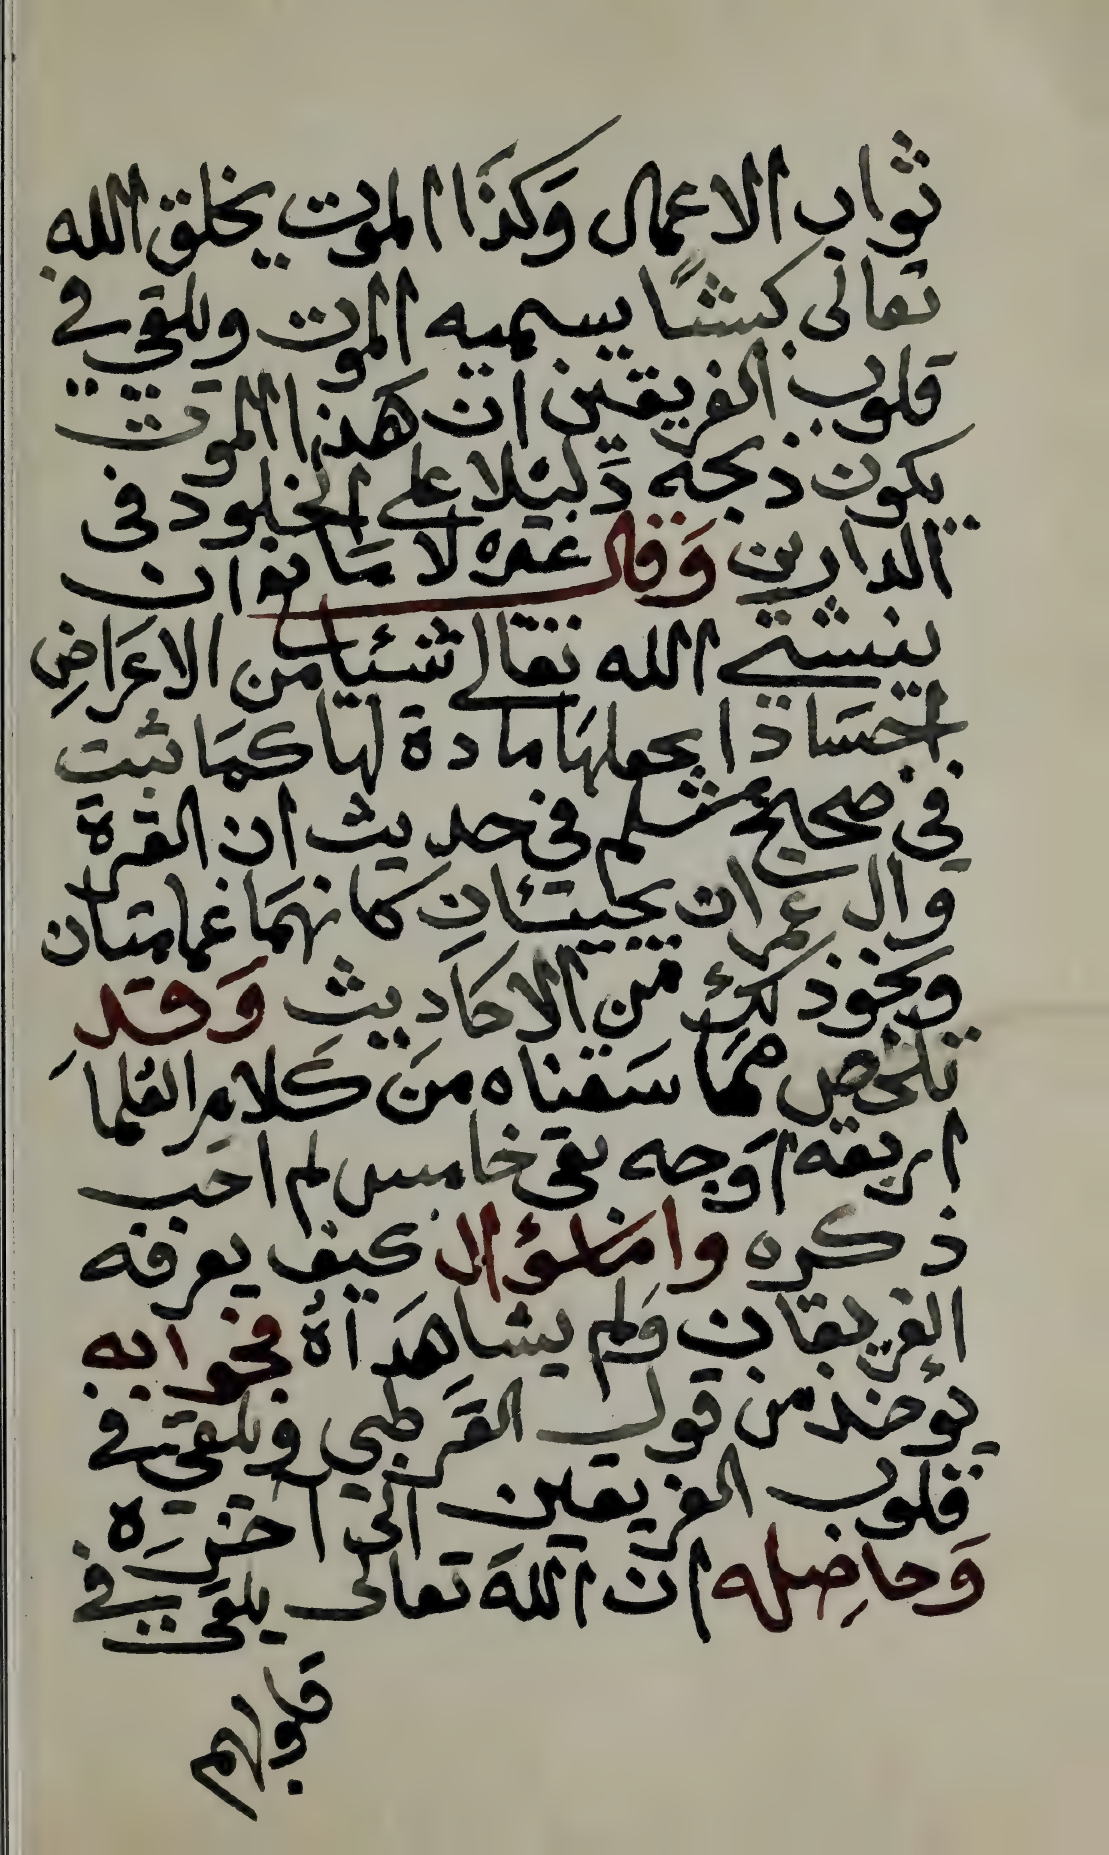 ثواب الاعمال وَكذَا الموت يخلق الله
تعالى كبشًا يسميه الموت ويلقي في
قلوب الفريقين ان هذا الموت
يكون ذبحه دَليلا على الخلود في
الدارين وَقال غيره لا مَانع ان
ينشئ الله تعالى شيئا من الاعرَاضِ
اجسَادا يجعلهَا مادة لها كمَا ثبت
في صحيح مسْلم في حديث ان البقرة
وال عمران يجيئانِ كانهمَا غمامتان
ونحو ذلك من الاحَاديث وَقد
تلخص ممَّا سَقناه منَ كَلام العُلماَ
اربعة اوَجه بقى خامس لم احَب
ذكره واما سؤال كيف يعرفه
الفريقان وَلم يشاهدَاهُ فجوابه
يؤخذ من قول القرَطبي ويلقي في
قلوب الفريقين الى اخَرِه
وَحاصِله ان اللهَ تعالى يلقي في
قلوبهم